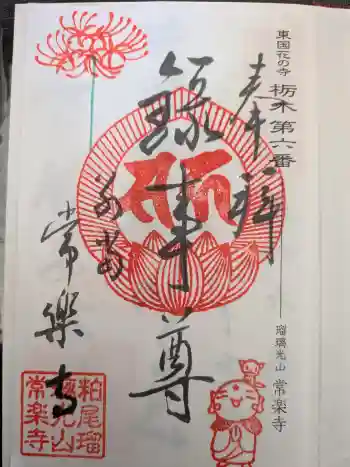 東国花の寺 栃木 第六番
瑠璃光山 常楽寺
奉拝
録事尊
常樂寺
粕尾瑠
璃光山
常楽寺